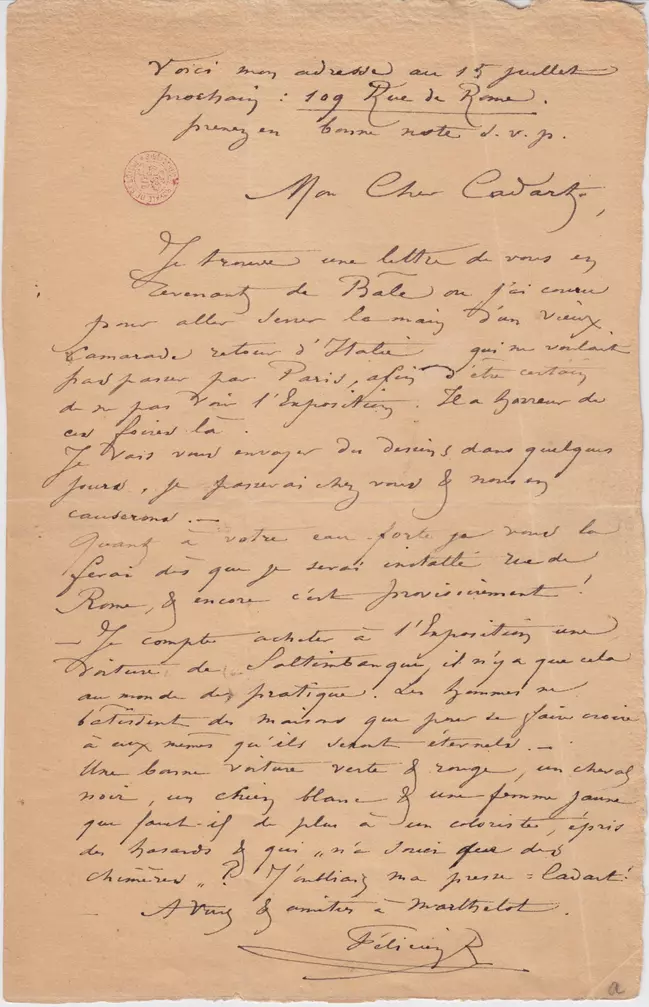 Voici mon adresse au 15 juillet
prochain : 109 Rue de Rome.
prenez en bonne note s.v.p.
Mon Cher Cadart,
Je trouve une lettre de vous en
revenant de Bâle ou j'ai couru
pour aller serrer la main d'un vieux
Camarade retour d'Italie qui ne voulait
pas passer par Paris, afin d'être certain
de ne pas voir l'Exposition. Il a horreur de
ces foires là.
Je vais vous envoyer des dessins dans quelques
jours, je passerai chez vous & nous en
causerons. —
Quant à votre eau-forte je vous la
ferai dès que je serai installé rue de
Rome, & encore c'est provisoirement !
— Je compte acheter à l'Exposition une
voiture de Saltimbanque, il n'y a que cela
au monde de pratique. Les hommes ne
bâtissent des maisons que pour se faire croire
à eux mêmes qu'ils seront éternels. —
Une bonne voiture verte & rouge, un cheval
noir, un chien blanc & une femme jaune
que faut-il de plus à un coloriste, épris
des hasards & qui „ n'a souci que des
chimères „ ? J'oubliais ma presse = Cadart !
A vous & amitiés à
Félicien R
a